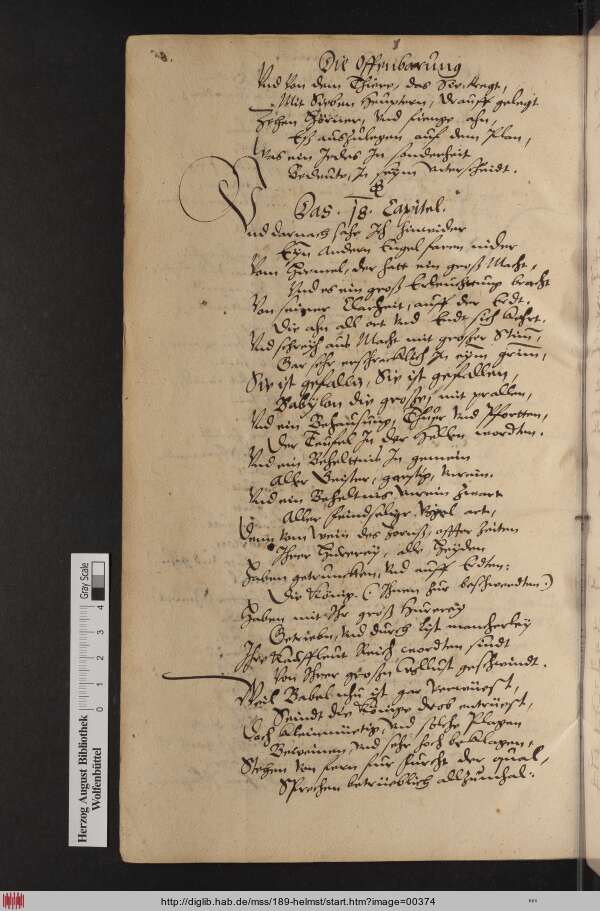 Die Offenbarung
Vnd von dem Thiere, das Sie tregt,
Mit Sieben Heuptern, drauff gelegt
Zehen Hörner, vnd fienge ahn,
Eß auszulegen auf dem Plan,
Was ein Jedes In sonderheit
Bedeute, In seym vnterscheidt.
Das . 18. Capitel.
Vnd darnach sahe Ich hinwider
Eyn Andern Engel faren nider
Vom Himmel, der hatt ein groß Macht,
Vnd es ein groß Erleuchtung bracht
Von seiner Clarheit, auff der Erdt,
Die ahn all ort vnd Endt sich kehrt.
Vnd schreyh aus Macht mit großer Stimm,
Gar sehr erschrecklich In eym grimm,
Sie ist gefallen, Sie ist gefallen,
Babylon die große, mit prallen,
Vnd ein Behausung, Thuer vnd Pfortten,
Der Teufel In der Hellen wordten.
Vnd ein Beheltnis In gemein
Aller Geister, garstig, vnrein.
Vnd ein Beheltnis vnrein Zwart
Aller feindseliger Vögel art,
Denn vom Wein des Zorns, offter Zeiten
Ihrer Hurerey, alle Heyden
Haben getruncken, vnd auff Erdten:
Die König (Ihnen zur beschwerdten)
Haben mit Ihr groß Hurerey
Getrieben, vnd durch list mancherley
Ihre Kauffleut Reich wordten sindt
Von Ihrer großen Wollust geschwindt.
Weil Babel nhu ist gar verwüest,
Seindt die Könige drob entrüest,
Doch kleinmüetig, vnd solche Plagen
Beweinen vnd sehr hoch beklagen,
Stehen von fern für furcht der qual,
Sprechen betrüeblich allzumhal:
Herzog August Bibliothek
Wolfenbüttel
0 1 2 3 4
Gray Scale
http://diglib.hab.de/mss/189-helmst/start.htm?image=00374